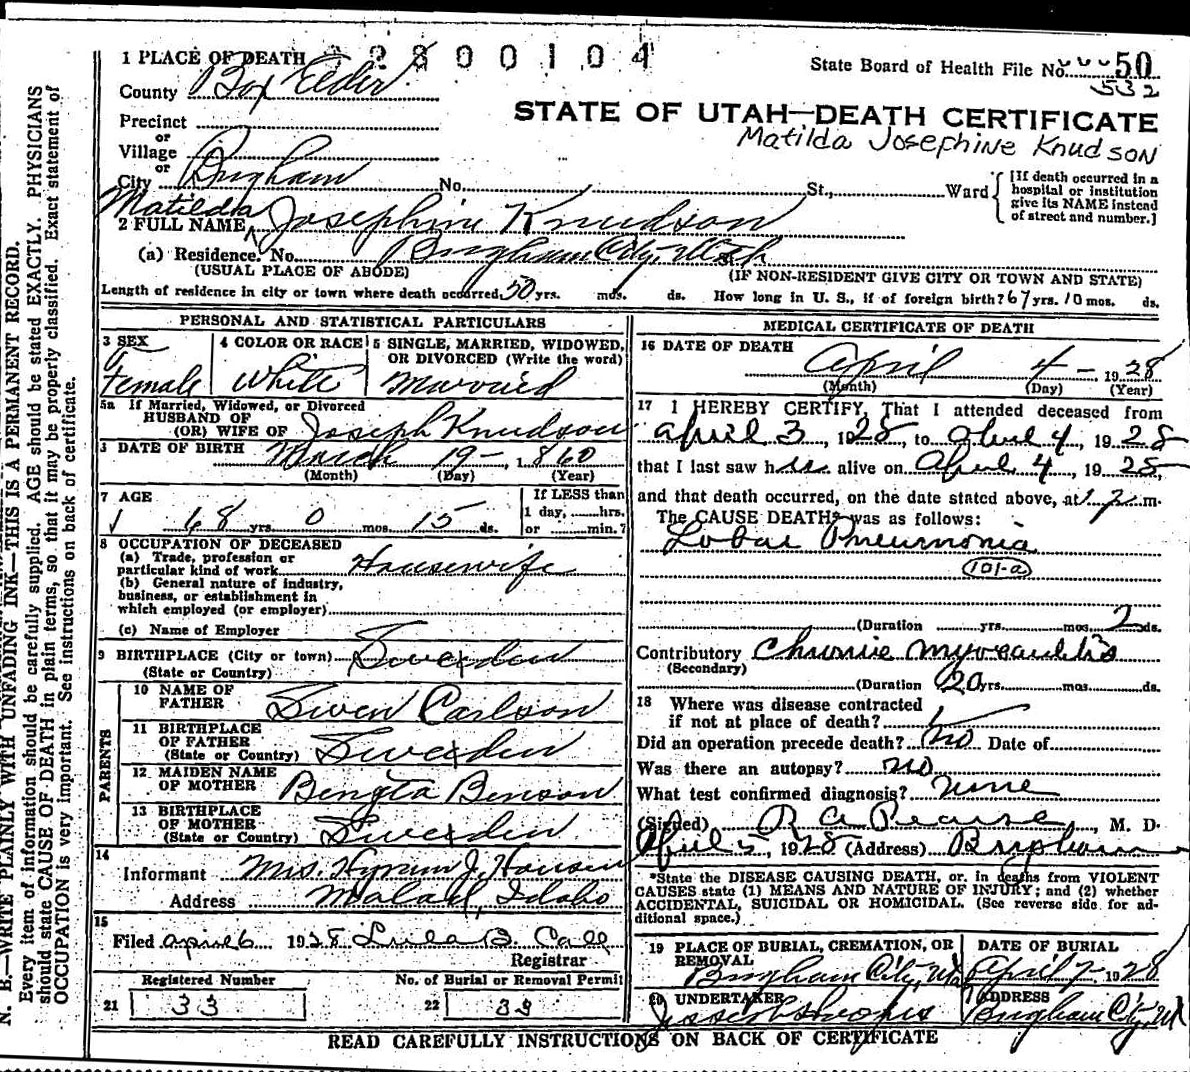 1 PLACE OF DEATH 2800104
State Board of Health File No. 50
532
County Box Elder
STATE OF UTAH—DEATH CERTIFICATE
Precinct
Matilda Josephine Knudson
or
Village
or
City Brigham No. St., Ward
[If death occurred in a hospital or institution give its NAME instead of street and number.]
Matilda
2 FULL NAME Josephine Knudson
(a) Residence. No. Brigham City, Utah
(USUAL PLACE OF ABODE) (IF NON-RESIDENT GIVE CITY OR TOWN AND STATE)
Length of residence in city or town where death occurred 50 yrs. mos. ds. How long in U. S., if of foreign birth? 67 yrs. 10 mos. ds.
PERSONAL AND STATISTICAL PARTICULARS
3 SEX
Female
4 COLOR OR RACE
White
5 SINGLE, MARRIED, WIDOWED,
OR DIVORCED (Write the word)
Married
5a If Married, Widowed, or Divorced
HUSBAND OF
(OR) WIFE OF Joseph Knudson
DATE OF BIRTH March 19-, 1860
(Month) (Day) (Year)
7 AGE
68 yrs. 0 mos. 15 ds.
If LESS than
1 day, hrs.
or min.?
8 OCCUPATION OF DECEASED
(a) Trade, profession or
particular kind of work Housewife
(b) General nature of industry,
business, or establishment in
which employed (or employer)
(c) Name of Employer
9 BIRTHPLACE (City or town) Sweden
(State or Country)
PARENTS
10 NAME OF
FATHER Swen Carlson
11 BIRTHPLACE
OF FATHER
(State or Country) Sweden
12 MAIDEN NAME
OF MOTHER Bengta Benson
13 BIRTHPLACE
OF MOTHER
(State or Country) Sweden
14
Informant Mrs. Hyrum J. Hansen
Address Malad, Idaho
15
Filed april 6 1928 Lula B. Call
Registrar
Registered Number No. of Burial or Removal Permit
21 33 22 33
MEDICAL CERTIFICATE OF DEATH
16 DATE OF DEATH
April 4- 1928
(Month) (Day) (Year)
17 I HEREBY CERTIFY, That I attended deceased from
april 3, 1928, to April 4, 1928
that I last saw her alive on April 4, 1928,
and that death occurred, on the date stated above, at m.
The CAUSE DEATH* was as follows:
Lobar Pneumonia
101-a
(Duration yrs. mos. 2 ds.
Contributory Chronic myocarditis
(Secondary)
(Duration 20 yrs. mos. ds.
18 Where was disease contracted
if not at place of death?
Did an operation precede death? no Date of
Was there an autopsy? no
What test confirmed diagnosis? none
(Signed) R A Pearse, M. D.
April 5, 1928 (Address) Brigham
*State the DISEASE CAUSING DEATH, or, in deaths from VIOLENT
CAUSES state (1) MEANS AND NATURE OF INJURY; and (2) whether
ACCIDENTAL, SUICIDAL OR HOMICIDAL. (See reverse side for ad-
ditional space.)
19 PLACE OF BURIAL, CREMATION, OR
REMOVAL
Brigham City, Ut
DATE OF BURIAL
April 7- 1928
20 UNDERTAKER
ADDRESS
Brigham City, Ut
READ CAREFULLY INSTRUCTIONS ON BACK OF CERTIFICATE
N. B.—WRITE PLAINLY WITH UNFADING INK—THIS IS A PERMANENT RECORD.
Every item of information should be carefully supplied. AGE should be stated EXACTLY. PHYSICIANS
should state CAUSE OF DEATH in plain terms, so that it may be properly classified. Exact statement of
OCCUPATION is very important. See instructions on back of certificate.